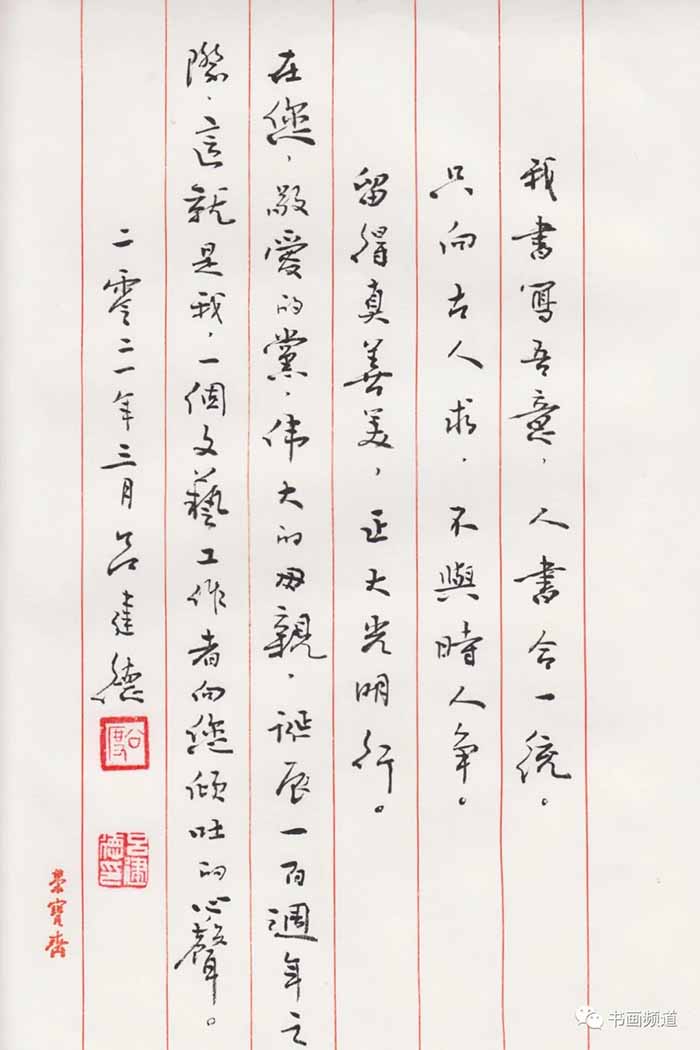 我書寫吾意，人書合一統。
只向古人求，不與時人争。
留得真善美，正大光明行。
在您，敬愛的黨，偉大的母親，誕辰一百週年之
際，這就是我，一個文藝工作者向您傾吐的心聲。
二零二一年三月 吕建德
吕建德印
榮寶齋
书画频道